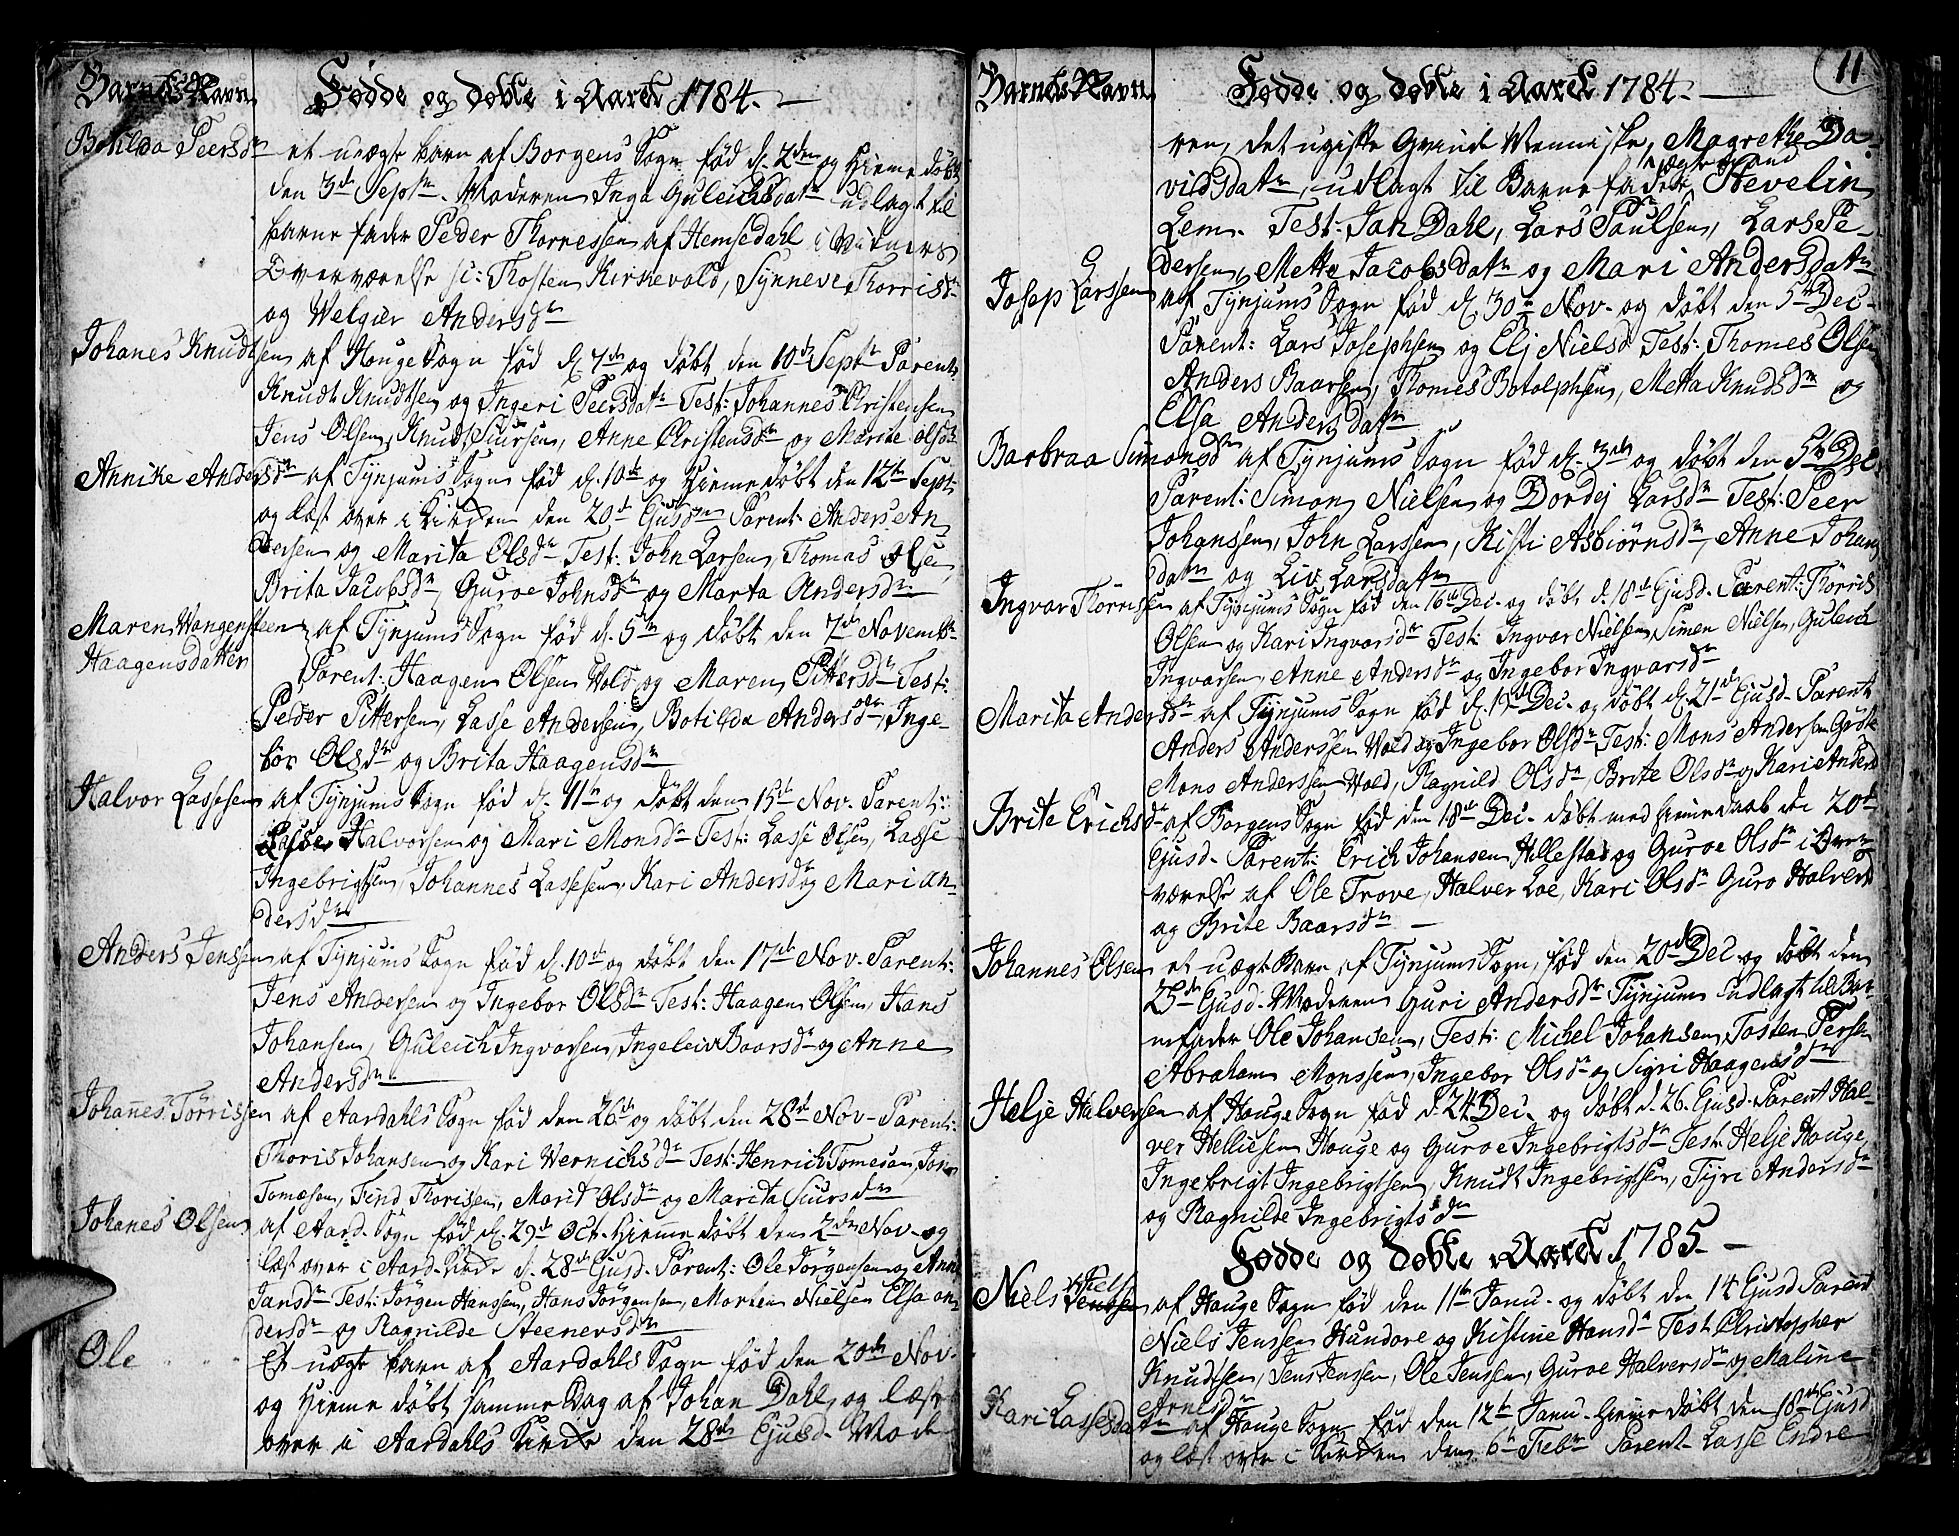 Barnets Navn
Fødde og døbte i Aaret 1784.
Botilda Peersdn et uægte barn af Borgens Sogn fød d. 2den og Hieme døbt
den 3de Septr. Moderen Inga Guleichsdatn udlagt til
barne fader Peder Thornessen af Hemsedahl i Vidners
Overværelse sc: Thosten Kirkevold, Synneve Thorrisdn
og Welgier Andersdn
Johanes Knudtsen af Houge Sogn fød d. 7de og døbt den 10de Septr Parent:
Knudt Knudtsen og Ingeri Peersdatn Test: Johannes Christensen
Jens Olsen, Knudt Siursen, Anne Christensdn og Marite Olsdn
Annike Andersdn af Tynjums Sogn fød d. 10de og Hieme døbt den 12te Sept:
og læst over i Kirken den 20de Ejusdm Parent: Anders An
dersen og Marita Olsdn Test: John Larsen, Thomas Olsen,
Brita Jacobsdn, Guroe Johnsdn og Marta Andersdn
Maren Wangensteen af Tynjums Sogn fød d. 5te og døbt den 7de Novembr
Haagensdatter Parent: Haagen Olsen Wold og Maren Pittersdn Test:
Peder Pittersen, Lasse Andersen, Botilda Andersdn, Inge-
bor Olsdn og Brita Haagensdn
Halvor Lassesen af Tynjums Sogn fød d. 11te og døbt den 15de Nov. Parent:
Lasse Halvorsen og Mari Monsdn Test: Lasse Olsen, Lasse
Ingebrigtsen, Johannes Lassesen, Kari Andersdn og Mari An-
dersdn
Anders Jenssen af Tynjums Sogn fød d. 10de og døbt den 17de Nov. Parent:
Jens Andersen og Ingebor Olsdn Test: Haagen Olsen, Hans
Johansen, Guleich Ingvarsen, Ingeleiv Baarsdn og Anne
Andersdn
Johañes Tørrissen af Aardahls Sogn fød den 26de og døbt den 28de Nov. Parent:
Thoris Johansen og Kari Wernichsdn Test: Henrich Tomesen, Joen
Tomæsen, Find Thorissen, Marit Olsdn og Marita Siursdn
Johanes Olsen af Aard. Sogn fød d. 29de Oct. Hieme døbt den 2den Nov. og
læst over i Aard. Kirke d. 28de Ejusd. Parent: Ole Jørgensen og Anne
Jansdn Test: Jørgen Hanssen, Hans Jørgensen, Morten Nielsen Elsa An
dersdn og Ragnilde Steenersdn
Ole Et uægte barn af Aardahls Sogn fød den 20de Nov.
og Hieme døbt samme Dag af Johan Dahl, og læst
over i Aardahls Kirke den 28de Ejusd. Mode
Barnets Navn
Fødde og døbte i Aaret 1784.
11
ren, det ugifte Qvinde Menniske, Magrethe Da-
vidsdatn, udlagt til Barne fader, ægte mand Hevelin
Lem. Test: Jan Dahl, Lars Paulsen, Lars Pe-
dersen, Mette Jacobsdatn og Mari Andersdatn
Josep Larssen af Tynjums Sogn fød d. 30te Nov. og døbt den 5te Dec.
Parent: Lars Josephsen og Elj Nielsd Test: Thomes Olsen
Anders Baarsen, Thomes Botolphsen, Metta Knudsdn og
Elsa Andersdatn
Barbraa Simonsdn af Tynjums Sogn fød d. 3de og døbt den 5te Dec.
Parent: Simon Nielsen og Dordej Larsdn Test: Peer
Johanssen, John Larssen, Kisti Asbiørnsdn, Anne Johans
datn og Liv Larsdatn
Ingvar Thørrisen af Tynjums Sogn fød den 16de Dec. og døbt d. 18de Ejusd. Parent: Thørris
Olsen og Kari Ingvarsdn Test: Ingvar Nielsen, Simen Nielsen, Guleich
Ingvarsen, Anne Andersdn og Ingebor Ingvarsdn
Marita Andersdn af Tynjums Sogn fød d. 19de Dec. og døbt d. 21de Ejusd. Parent
Anders Anderssen Wold og Ingebor Olsdn, Test: Mons Andersen
Mons Anderssen Wold, Ragnild Olsdn, Brite Olsdn og Kari Anders
Brite Erichsdn af Borgens Sogn fød den 18de Dec. døbt med Hiemedaab den 20de
Ejusd. Parent: Erich Johansen Hellestad og Guroe Olsdn i Over-
værelse af Ole Trove, Halver Loe, Kari Olsdn Guro Halversd
og Brite Baarsdn
Johannes Olsen et uægte Barn af Tynjums Sogn, fød den 20de Dec og døbt den
25de Ejusd. Moderen Guri Andersdn Tynjum udlagt til Bar-
nefader Ole Johansen, Test: Michel Johansen, Tosten Persen
Abraham Monssen, Ingebor Olsdn og Sigri Haagensdn
Helje Halversen af Houge Sogn fød d. 24de Dec. og døbt d. 26. Ejusd. Parent Hal-
ver Helliesen Houge og Guroe Ingebrigtsdn Test: Helje Houge,
Ingebrigt Ingebrigtsen, Knudt Ingebrigtsen, Tyri Andersdn
og Ragnilde Ingebrigtsdn
Fødde og døbte i Aaret 1785.
Niels Nielsen af Houge Sogn fød den 11te Janu. og døbt den 14 Ejusd Parent
Niels Jenssen Hundore og Kistine Hansdn Test Christopher
Knudtsen, Jens Jenssen, Ole Jenssen, Guroe Halversdn og Maline
Arnesdn
Kari Lassesdatn af Houge Sogn fød den 12te Janu. Hieme døbt den 18de Ejusd
og læst over i Kirken den 6te Febr Parent. Lasse Endre